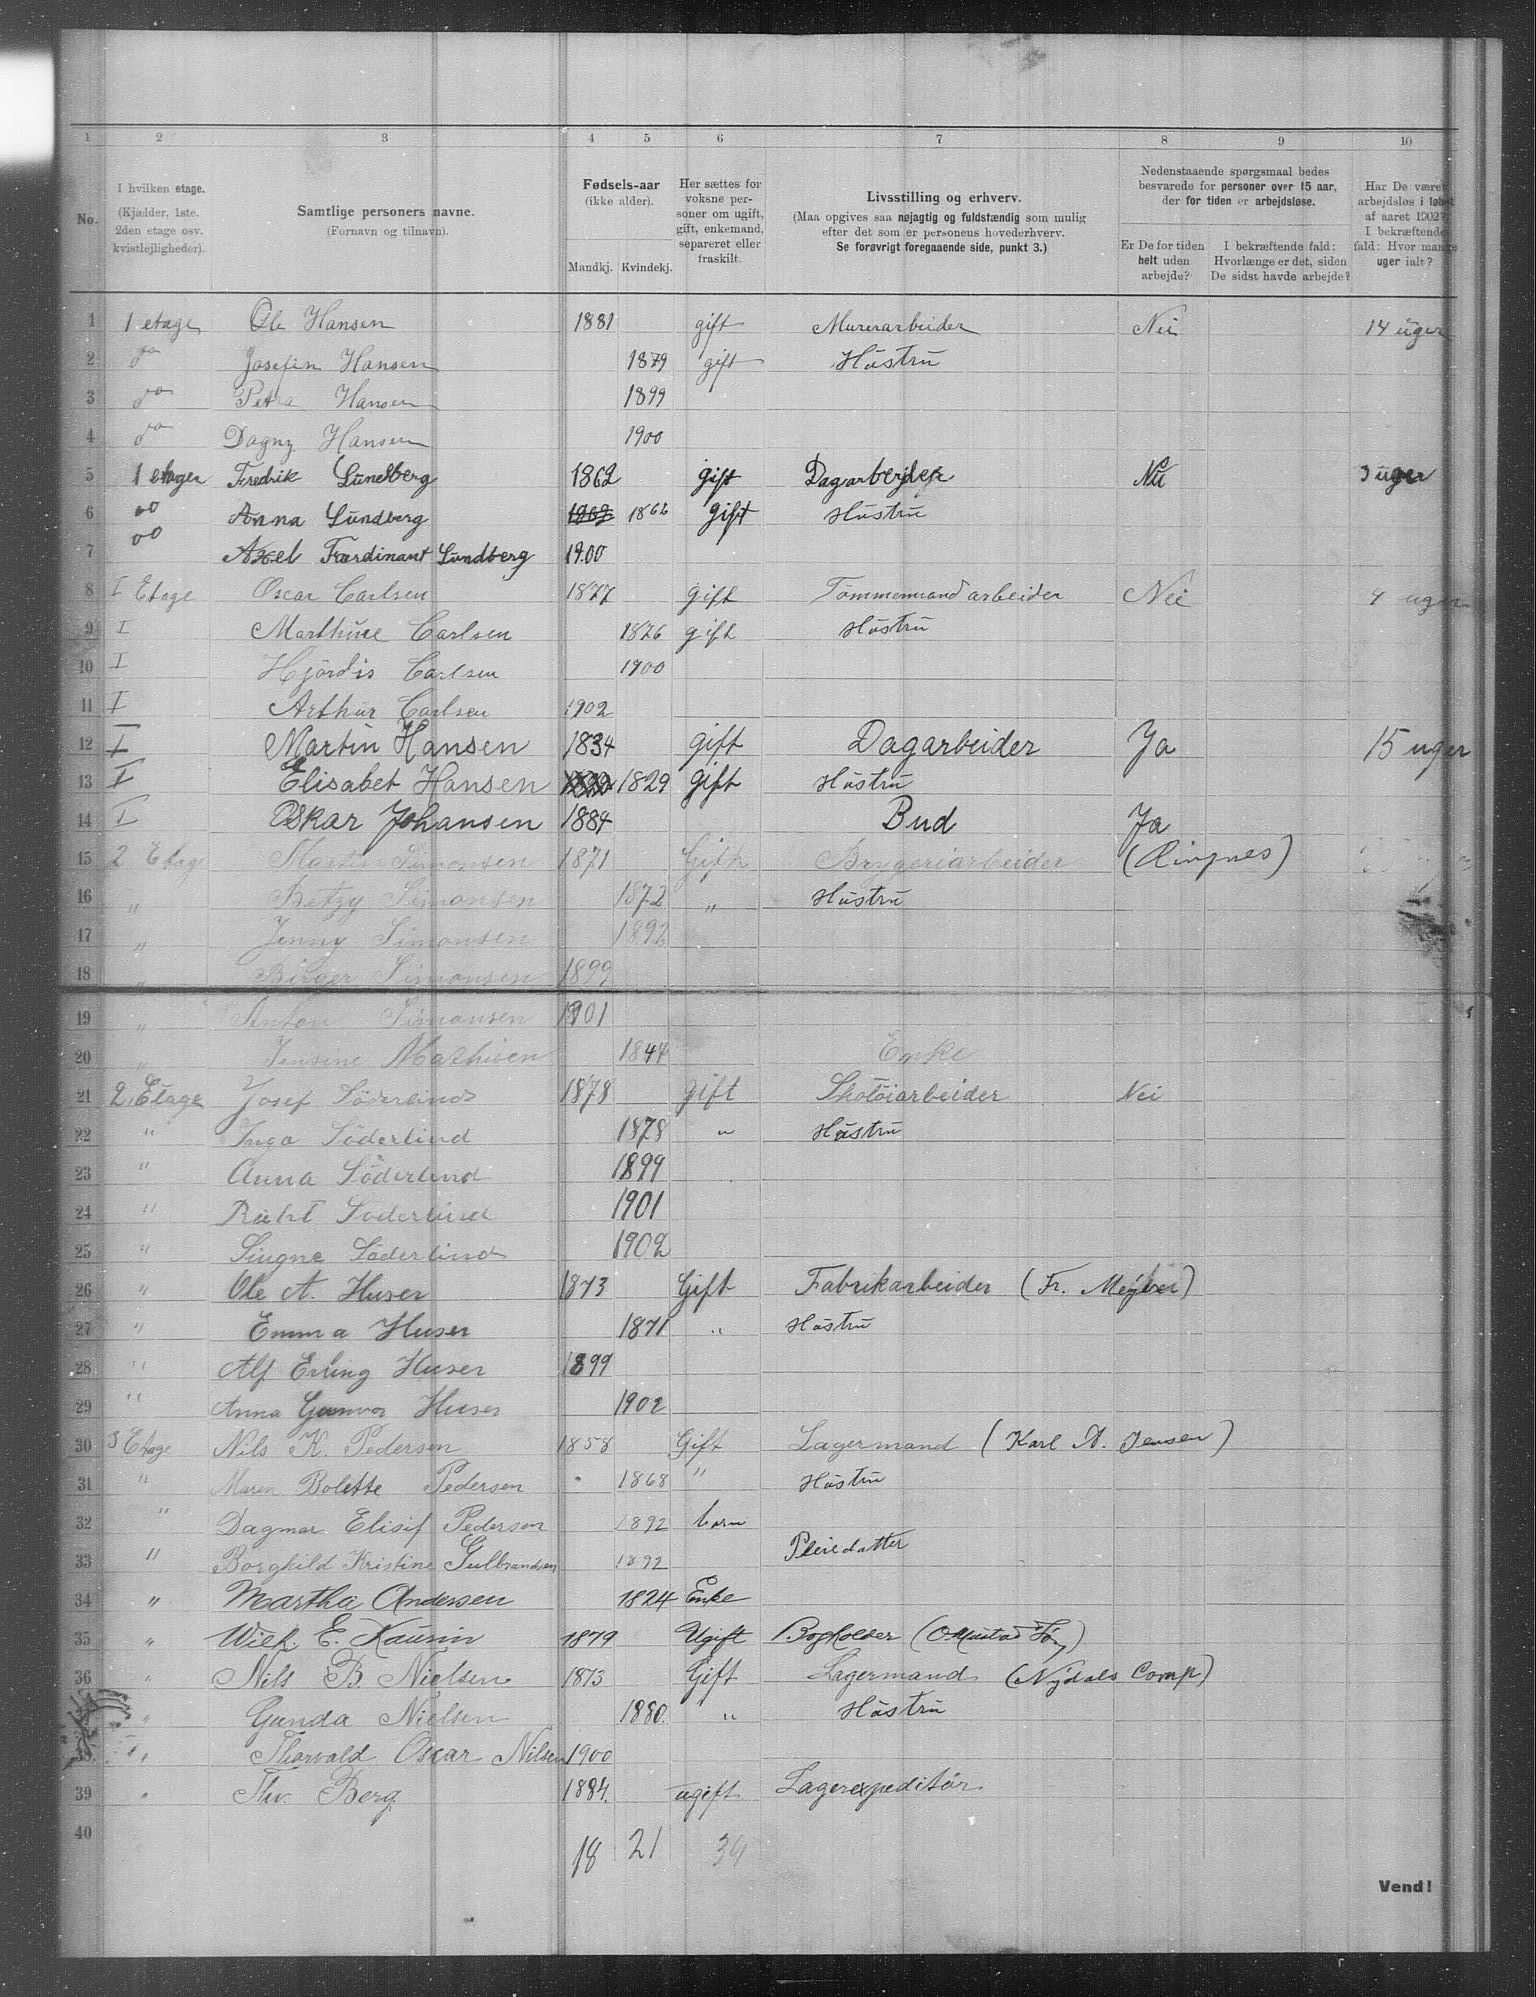 1 2 3 4 5 6 7 8 9 10
No.
I hvilken etage.
(Kjælder, 1ste.
2den etage osv.
kvistlejligheder).
Samtlige personers navne.
(Fornavn og tilnavn).
Fødsels-aar
(ikke alder).
Mandkj. Kvindekj.
Her sættes for
voksne per-
soner om ugift,
gift, enkemand,
separeret eller
fraskilt.
Livsstilling og erhverv.
(Maa opgives saa nøjagtig og fuldstændig som mulig
efter det som er personens hovederhverv.
Se forøvrigt foregaaende side, punkt 3.)
Nedenstaaende spørgsmaal bedes
besvarede for personer over 15 aar,
der for tiden er arbejdsløse.
Er De for tiden
helt uden
arbejde?
I bekræftende fald:
Hvorlænge er det, siden
De sidst havde arbejde?
Har De været
arbejdsløs i løbet
af aaret 1902?
I bekræftende
fald: Hvor mange
uger ialt?
1 1 etage Ole Hansen 1881 gift Murerarbeider Nei 14 uger
2 do Josefin Hansen 1879 gift Hustru
3 do Petra Hansen 1899
4 do Dagny Hansen 1900
5 1 etager Fredrik Lundberg 1862 gift Dagarbejder Nei 3 uger
6 do Anna Lundberg 1862 gift Hustru
7 do Axel Færdinant Lundberg 1900
8 I Etage Oscar Carlsen 1877 gift Tømmermand arbeider Nei 4 uger
9 I Marthine Carlsen 1876 gift Hustru
10 I Hjørdis Carlsen 1900
11 I Arthur Carlsen 1902
12 I Martin Hansen 1834 gift Dagarbeider Ja 15 uger
13 I Elisabet Hansen 1829 gift Hustru
14 I Oskar Johansen 1884 Bud Ja
15 2 Etage Martin Simonsen 1871 Gift Bryggeriarbeider (Ringnes)
16 „ Betzy Simonsen 1872 „ Hustru
17 „ Jenny Simonsen 1892
18 „ Birger Simonsen 1899
19 „ Anton Simonsen 1901
20 „ Jensine Mathisen 1844 Enke
21 2. Etage Josef Söderlind 1878 gift Skotöiarbeider Nei
22 " Inga Söderlind 1878 " Hustru
23 " Anna Söderlind 1899
24 " Söderlind 1901
25 " Singne Söderlind 1902
26 " Ole A. Huser 1873 Gift Fabrikarbeider (Fr. Meyer)
27 " Emma Huser 1871 " Hustru
28 " Alf Erling Huser 1899
29 " Anna Gunvor Huser 1902
30 3 Etage Nils K. Pedersen 1858 Gift Lagermand (Karl A. Jensen)
31 " Maren Bolette Pedersen 1868 " Hustru
32 " Dagmar Elisif Pedersen 1892 barn
33 " Borghild Kristine Gulbrandsen 1892 Pleiedatter
34 " Martha Andersen 1824 Enke
35 " Wilh. E. Kaurin 1879 Ugift Bogholder (O Mustad Søn)
36 " Nils B. Nielsen 1873 Gift Lagermand (Nydals Comp)
" Gunda Nielsen 1880. " Hustru
38 " Thorvald Oscar Nilsen 1900
39 " Thv. Berg 1884. ugift Lagerexpeditör
40
18 21 34
Vend!